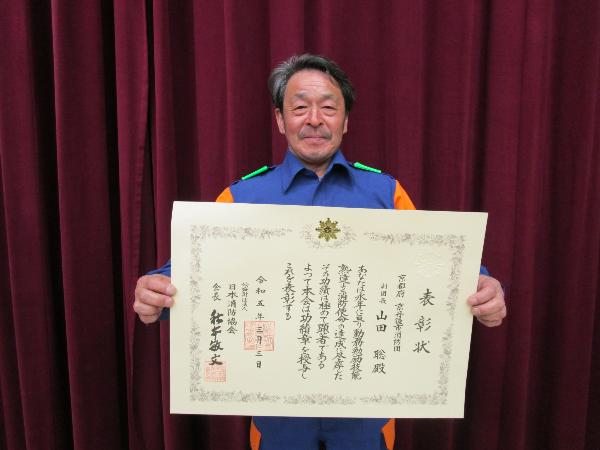 表彰状
京都府 京丹後市消防団
副団長 山田 聡 殿
あなたは永年に亘り勤務勉励技能
熟達よく消防使命の達成に尽瘁した
その功績は極めて顕著である
よって本会は功績章を授与し
これを表彰する
令和五年三月三日
公益財団法人
日本消防協会
会長 秋本敏文